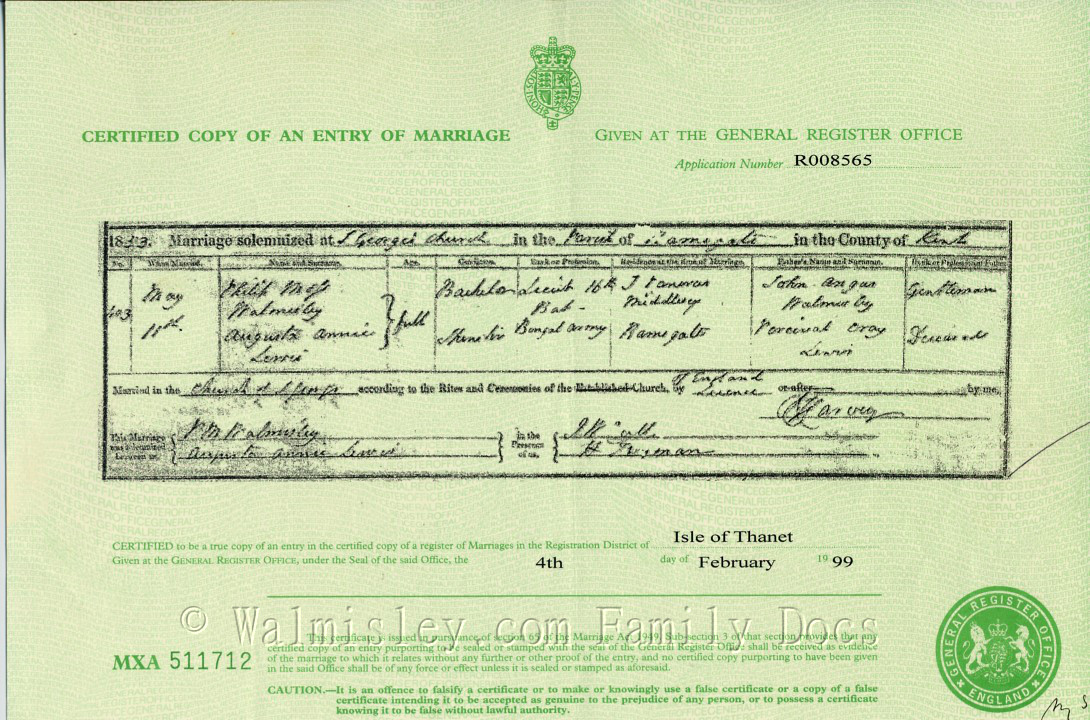 CERTIFIED COPY OF AN ENTRY OF MARRIAGE
GIVEN AT THE GENERAL REGISTER OFFICE
Application Number R008565
Marriage solemnized at S. George's Church in the Parish of Ramsgate in the County of Kent
No. When Married. Name and Surname. Age. Condition. Rank or Profession. Residence at the time of Marriage. Father's Name and Surname. Rank or Profession of Father.
403
May
Philip
Walmisley
full
Bachelor
Lieut 16th
S Pancras
Middlesex
John Angus
Walmisley
Gentleman
Augusta Annie
Lewis
Spinster
Bengal Army
Ramsgate
Percival
Lewis
Deceased
Married in the Church of S George according to the Rites and Ceremonies of the Established Church, of England by Licence or after by me,
This Marriage was solemnized between us,
P M Walmisley
Augusta Annie Lewis
in the Presence of us,
CERTIFIED to be a true copy of an entry in the certified copy of a register of Marriages in the Registration District of Isle of Thanet
Given at the GENERAL REGISTER OFFICE, under the Seal of the said Office, the 4th day of February 19 99
© Walmisley.com Family Docs
This certificate is issued in pursuance of section 65 of the Marriage Act 1949. Sub-section 3 of that section provides that any
certified copy of an entry purporting to be sealed or stamped with the seal of the General Register Office shall be received as evidence
of the marriage to which it relates without any further or other proof of the entry, and no certified copy purporting to have been given
in the said Office shall be of any force or effect unless it is sealed or stamped as aforesaid.
MXA 511712
CAUTION.—It is an offence to falsify a certificate or to make or knowingly use a false certificate or a copy of a false
certificate intending it to be accepted as genuine to the prejudice of any person, or to possess a certificate
knowing it to be false without lawful authority.
GENERAL REGISTER OFFICE
ENGLAND